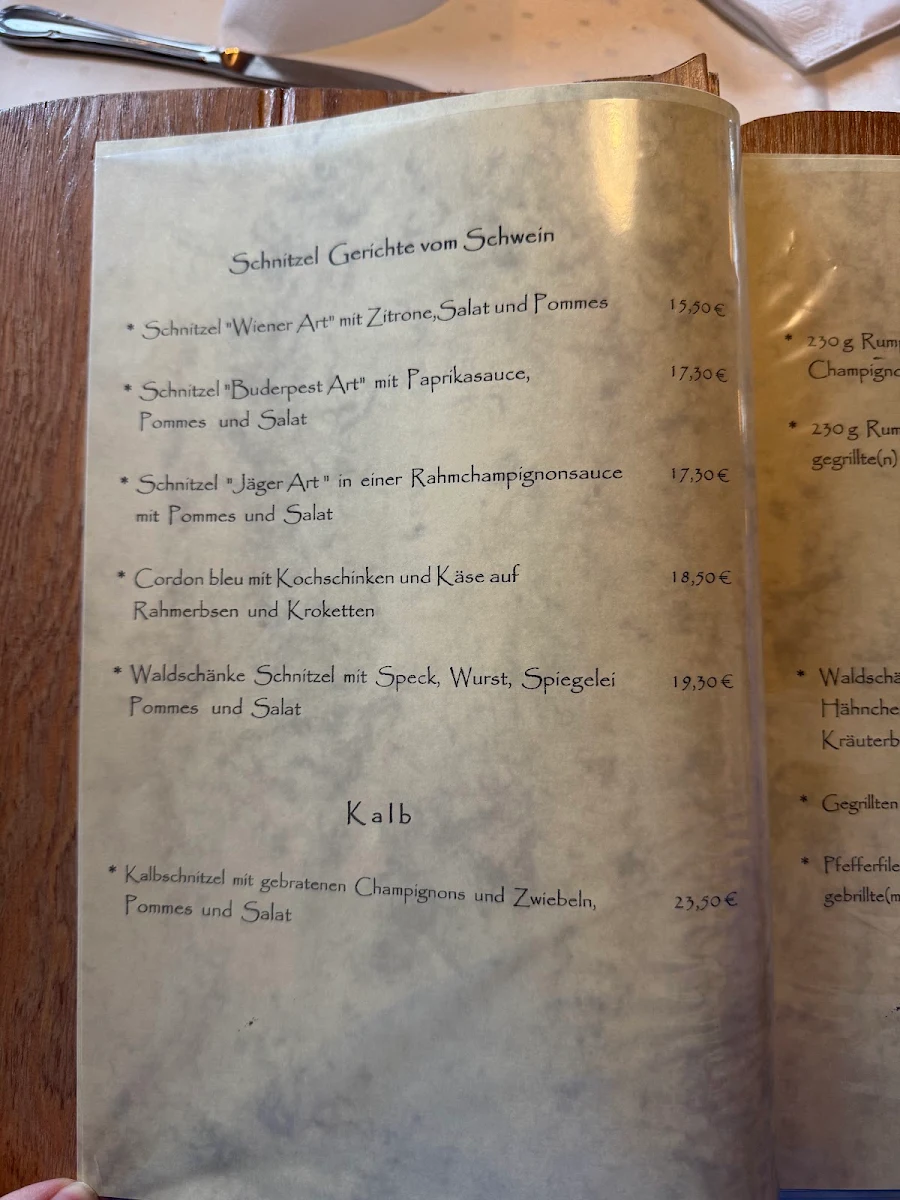 Schnitzel Gerichte vom Schwein
* Schnitzel "Wiener Art" mit Zitrone,Salat und Pommes 15,50 €
* Schnitzel "Buderpest Art" mit Paprikasauce, 17,30 €
Pommes und Salat
* Schnitzel "Jäger Art" in einer Rahmchampignonsauce 17,30 €
mit Pommes und Salat
* Cordon bleu mit Kochschinken und Käse auf 18,50 €
Rahmerbsen und Kroketten
* Waldschänke Schnitzel mit Speck, Wurst, Spiegelei 19,30 €
Pommes und Salat
Kalb
* Kalbschnitzel mit gebratenen Champignons und Zwiebeln, 23,50 €
Pommes und Salat
* 230 g Rum
Champigno
* 230 g Rum
gegrillte(n)
* Waldschä
Hähnche
Kräuterb
* Gegrillten
* Pfefferfile
gebrillte(m